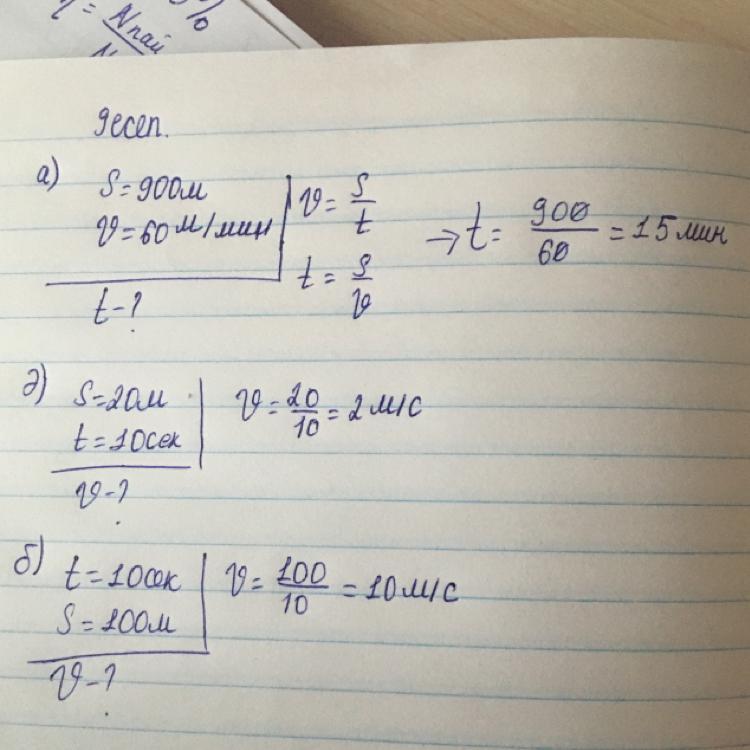 η = Nпай
%
9 есеп.
а) S = 900м
υ = 60 м/мин
t - ?
υ = S/t
t = S/υ
→ t = 900/60 = 15 мин
д) S = 20м
t = 10сек
υ - ?
υ = 20/10 = 2 м/с
б) t = 10сек
S = 100м
υ - ?
υ = 100/10 = 10 м/с